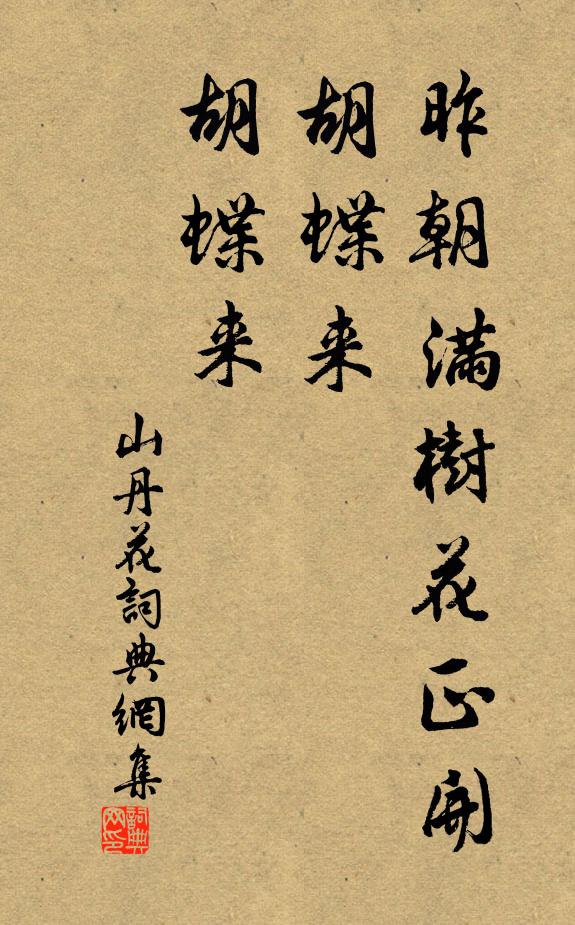 昨朝滿樹花正開
胡蝶来
胡蝶来
山丹花詞典網集
詞典网印